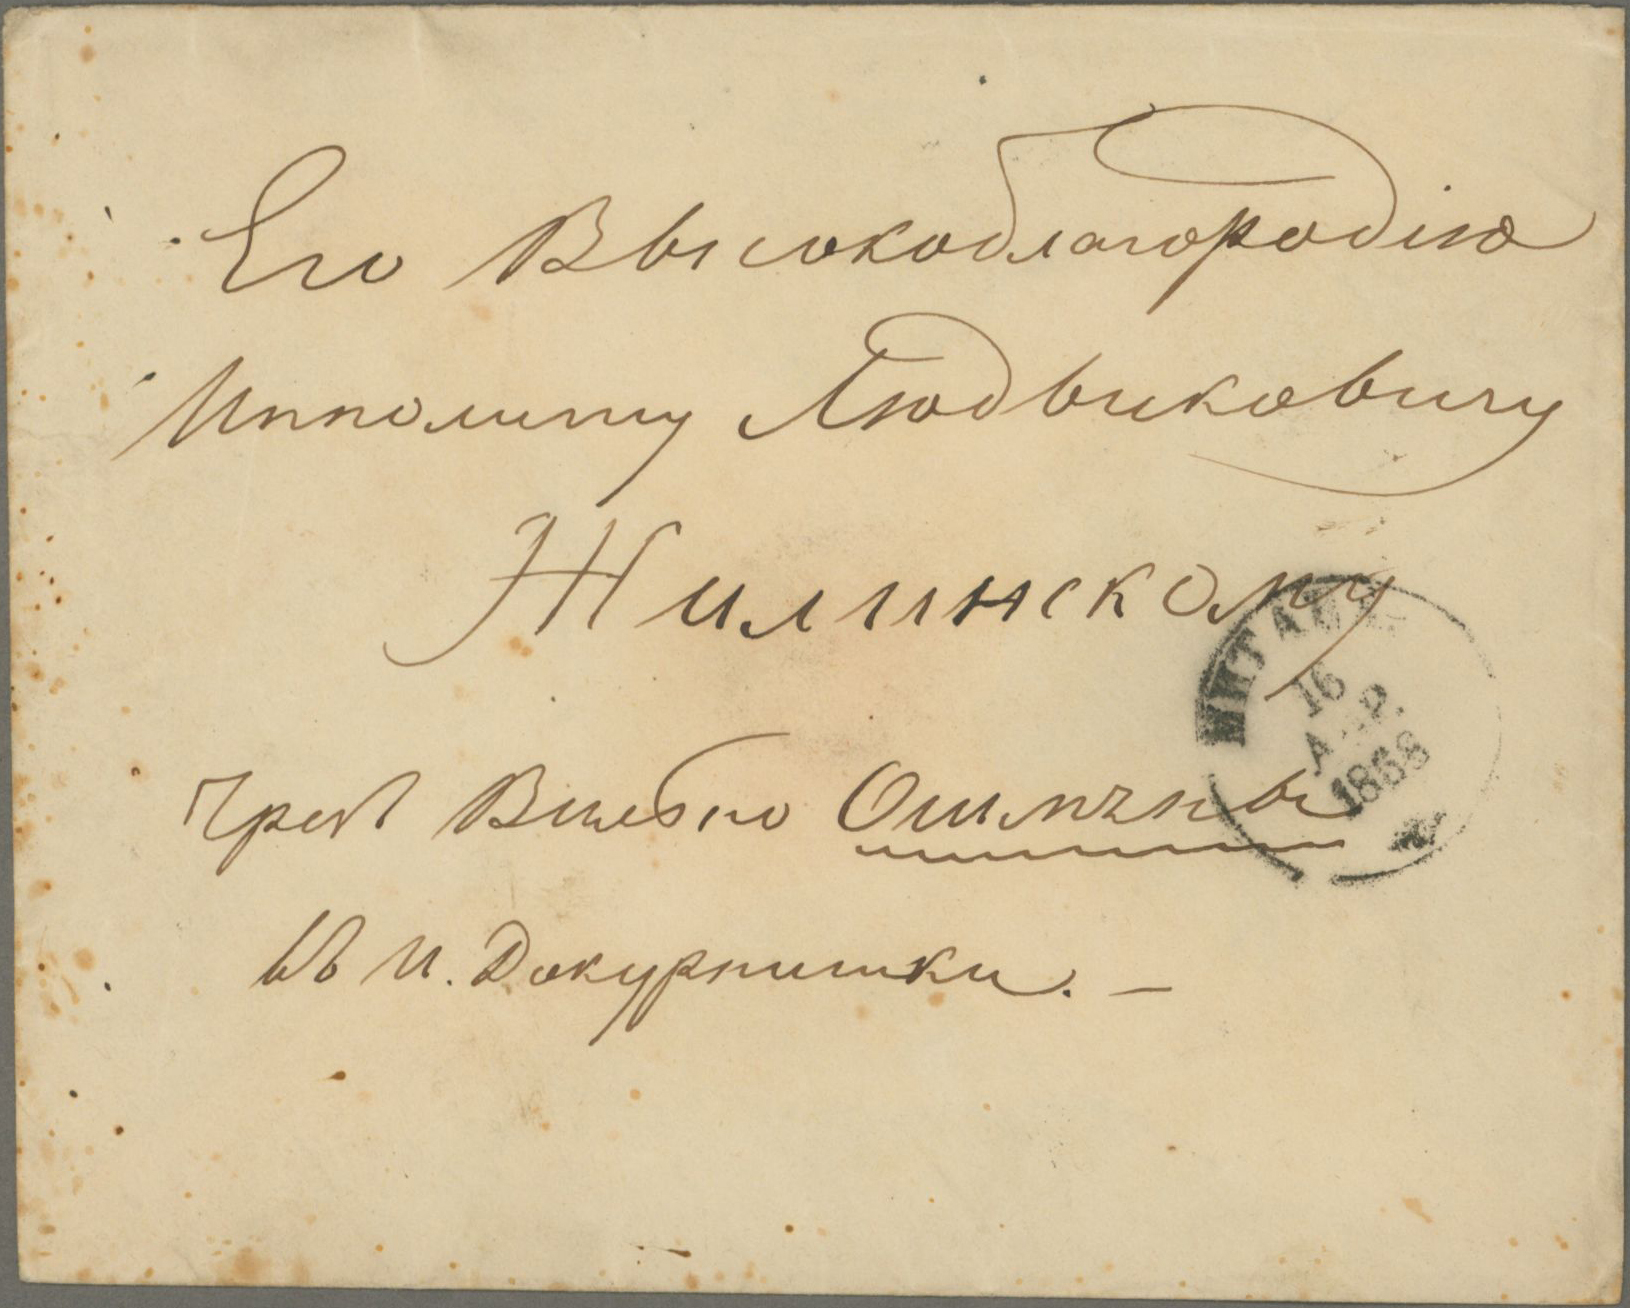 Его Высокоблагородію
Ипполиту Людвиковичу
Жилинскому
чрезъ Вильно Ошмяны
въ И. Докурнишки. —
МИТАВА
16
АПР.
1868